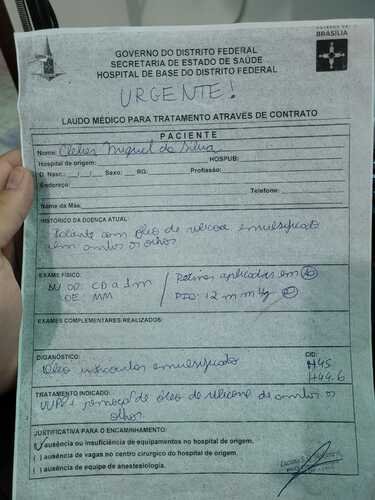 GOVERNO DO DISTRITO FEDERAL
SECRETARIA DE ESTADO DE SAÚDE
HOSPITAL DE BASE DO DISTRITO FEDERAL
BRASÍLIA
URGENTE!
LAUDO MÉDICO PARA TRATAMENTO ATRAVES DE CONTRATO
PACIENTE
Nome: Miguel da Silva
Hospital de origem: HOSPUB:
D. Nasc.: __/__/__ Sexo: RG: Profissão:
Endereço:
Telefone:
Nome da Mãe:
HISTÓRICO DA DOENÇA ATUAL:
com óleo de silicone emulsificado
em ambos os olhos
EXAME FÍSICO:
OD: CD a 1m / Retinas aplicadas em AO
OE: MM / PIO: 12 mmHg
EXAMES COMPLEMENTARES REALIZADOS:
DIGANÓSTICO: CID:
Óleo emulsificado H45
H44.6
TRATAMENTO INDICADO:
VVPP + remoção de óleo de silicone de ambos os
olhos
JUSTIFICATIVA PARA O ENCAMINHAMENTO:
( ) ausência ou insuficiência de equipamentos no hospital de origem.
( ) ausência de vagas no centro cirurgico do hospital de origem.
( ) ausência de equipe de anestesiologia.